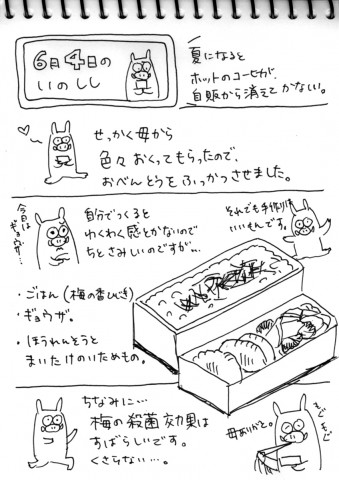 6月4日の
いのしし
夏になると
ホットのコーヒーが、
自販から消えてかない。
せっかく母から
色々おくってもらったので、
おべんとうをふっかつさせました。
今日は
ギョウザ…
自分でつくると
わくわく感とかないので
ちとさみしいのですが…
それでも手作りは
いいもんです。
・ごはん(梅の香ひじき)
・ギョウザ。
・ほうれんそうと
まいたけのいためもの。
ちなみに…
梅の殺菌効果は
すばらしいです。
くさらない…。
母ありがと。
もぐ
もぐ